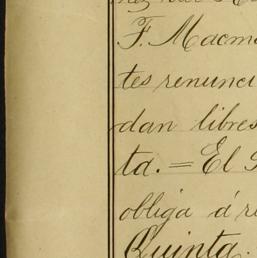 F. Macm
tes renunci
dan libres
ta. = El
obliga á r
Quinta.